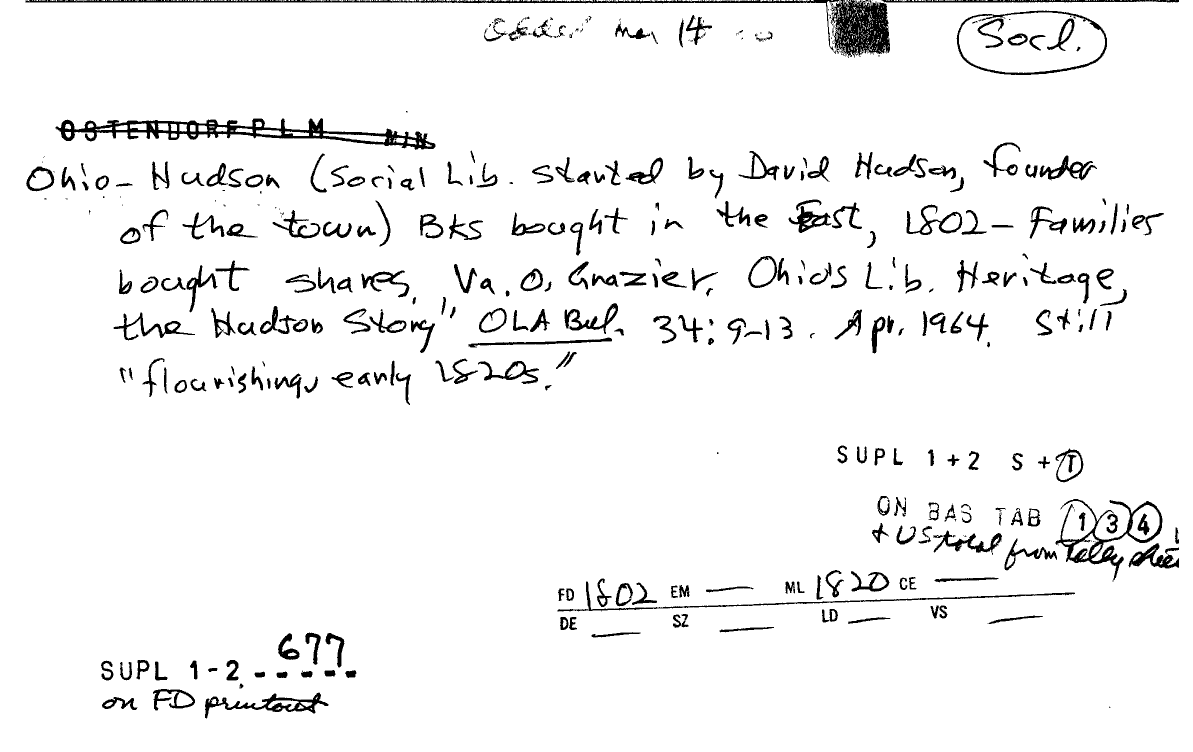 Mar 14
Socl.
OSTENDORF P L M MIN
Ohio - Hudson (Social Lib. started by David Hudson, founder
of the town) Bks bought in the East, 1802 - Families
bought shares, Va. O, Grazier, Ohio's Lib. Heritage,
the Hudson Story" OLA Bul. 34:9-13. Apr. 1964. Still
"flourishing, early 1820s."
SUPL 1+2 S + T
ON BAS TAB 1 3 4
+ US total from Tally sheet
FD 1802 EM — ML 1820 CE —
DE — SZ — LD — VS —
677
SUPL 1-2 - - - - -
on FD printout